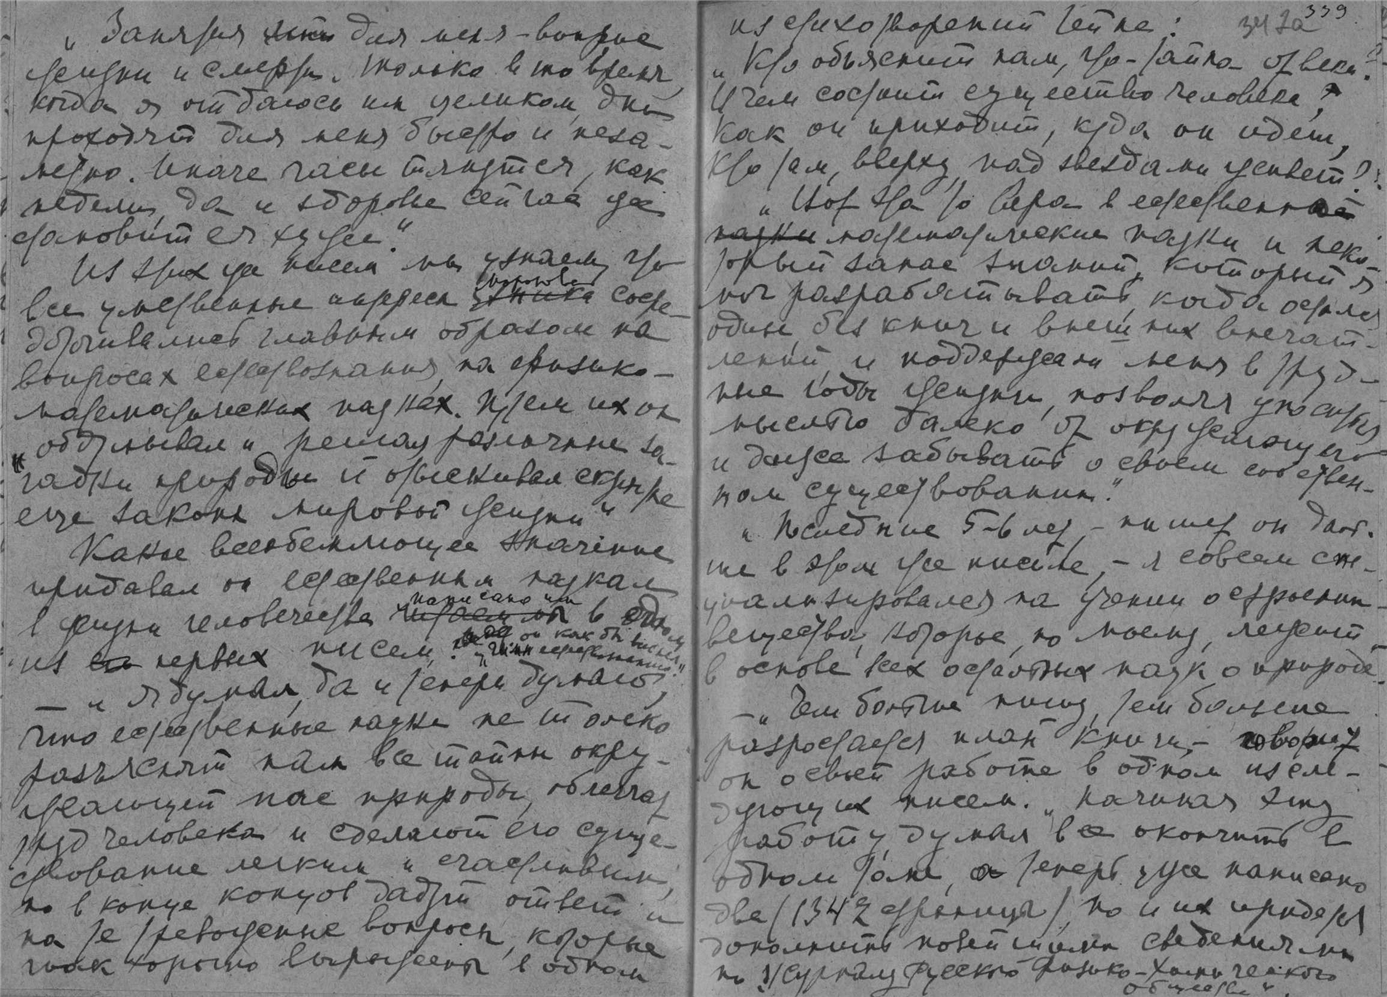 „Занятия для меня – вопрос
жизни и смерти. Только в то время,
когда я отдаюсь им целиком, дни
проходят для меня быстро и неза-
метно. Иначе часы тянутся, как
недели, да и здоровье сейчас же
становится хуже."
Из этих же писем мы узнаем, что
все умственные интересы узника Морозова сосре-
дотачивались главным образом на
вопросах естествознания, на физико-
математических науках. Путем их он
„обдумывал и решал различные за-
гадки природы и отыскивал скрытые
еще законы мировой жизни"
Какое всеобъемлющее значение
придавал он естественным наукам
в жизни человечества, читаем мы написано им в одном
из его первых писем, где он как бы
„гимн естествознанию"
– „Я думал, да и теперь думаю,
что естественные науки не только
разъяснят нам все тайны окру-
жающей нас природы, облегчат
труд человека и сделают его суще-
ствование легким и счастливым,
но в конце концов дадут ответ и
на те тревожные вопросы, которые
так хорошо выражены в одном
339
342а
из стихотворений Гейне:
„Кто объяснит нам, что – тайна от века?
И чем состоит существо человека?
Как он приходит, куда он идет,
Кто там, вверху, над звездами живет?"
„Вот эта то вера в естественные
науки математические науки и неко-
торый запас знаний, который я
мог разрабатывать, когда остался
один без книг и внешних впечат-
лений, и поддержали меня в труд-
ные годы жизни, позволяя уноситься
мыслью далеко от окружающего
и даже забывать о своем собствен-
ном существовании."
„Последние 5-6 лет, – пишет он даль-
ше в этом же письме, – я совсем спе-
циализировался на учении о строении
вещества, которые, по моему, лежит
в основе всех остальных наук о природе."
– „Чем больше пишу, тем больше
разростается план книги, – говорит
он о своей работе в одном из сле-
дующих писем. „Начиная эту
работу, думал все окончить в
одном томе, а теперь уже написано
два (1342 страницы), но и их придется
дополнить новейшими сведениями
по „Журналу Русского Физико-Химического
общества".